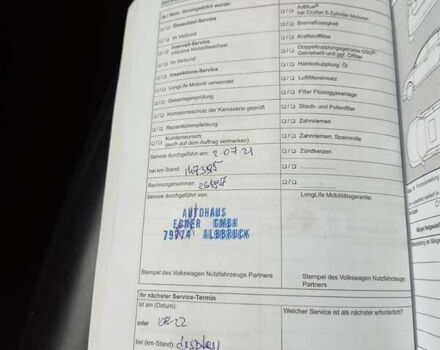 Ja / Nein Durchgeführt:
Ölwechsel-Service
im Verbund
Intervall-Service
inklusive Motorölwechsel
im Verbund
Inspektions-Service
LongLife Motoröl verwendet
Gasanlagenprüfung
Korrosionsschutz der Karosserie geprüft
Reparaturempfehlung
Kundenwunsch
(auch auf dem Auftrag vermerken)
Service durchgeführt am: 2-07-21
bei km-Stand:
Rechnungsnummer:
Service durchgeführt von:
AUTOHAUS
EBNER GMBH
79774 ALBBRUCK
Stempel des Volkswagen Nutzfahrzeuge Partners
Ihr nächster Service-Termin
ist am (Datum):
oder
bei (km-Stand):
AdBlue®
bei Crafter 6-Zylinder Motoren
Bremsflüssigkeit
Kraftstofffilter
Doppelkupplungsgetriebe DSG®:
Getriebeöl und ggf. Ölfilter
Haldexkupplung: Öl
Luftfiltereinsatz
Filter Flüssiggasanlage
Staub- und Pollenfilter
Zahnriemen
Zahnriemen: Spannrolle
Zündkerzen
LongLife Mobilitätsgarantie:
Stempel des Volkswagen Nutzfahrzeuge Partners
Welcher Service ist als nächster erforderlich?